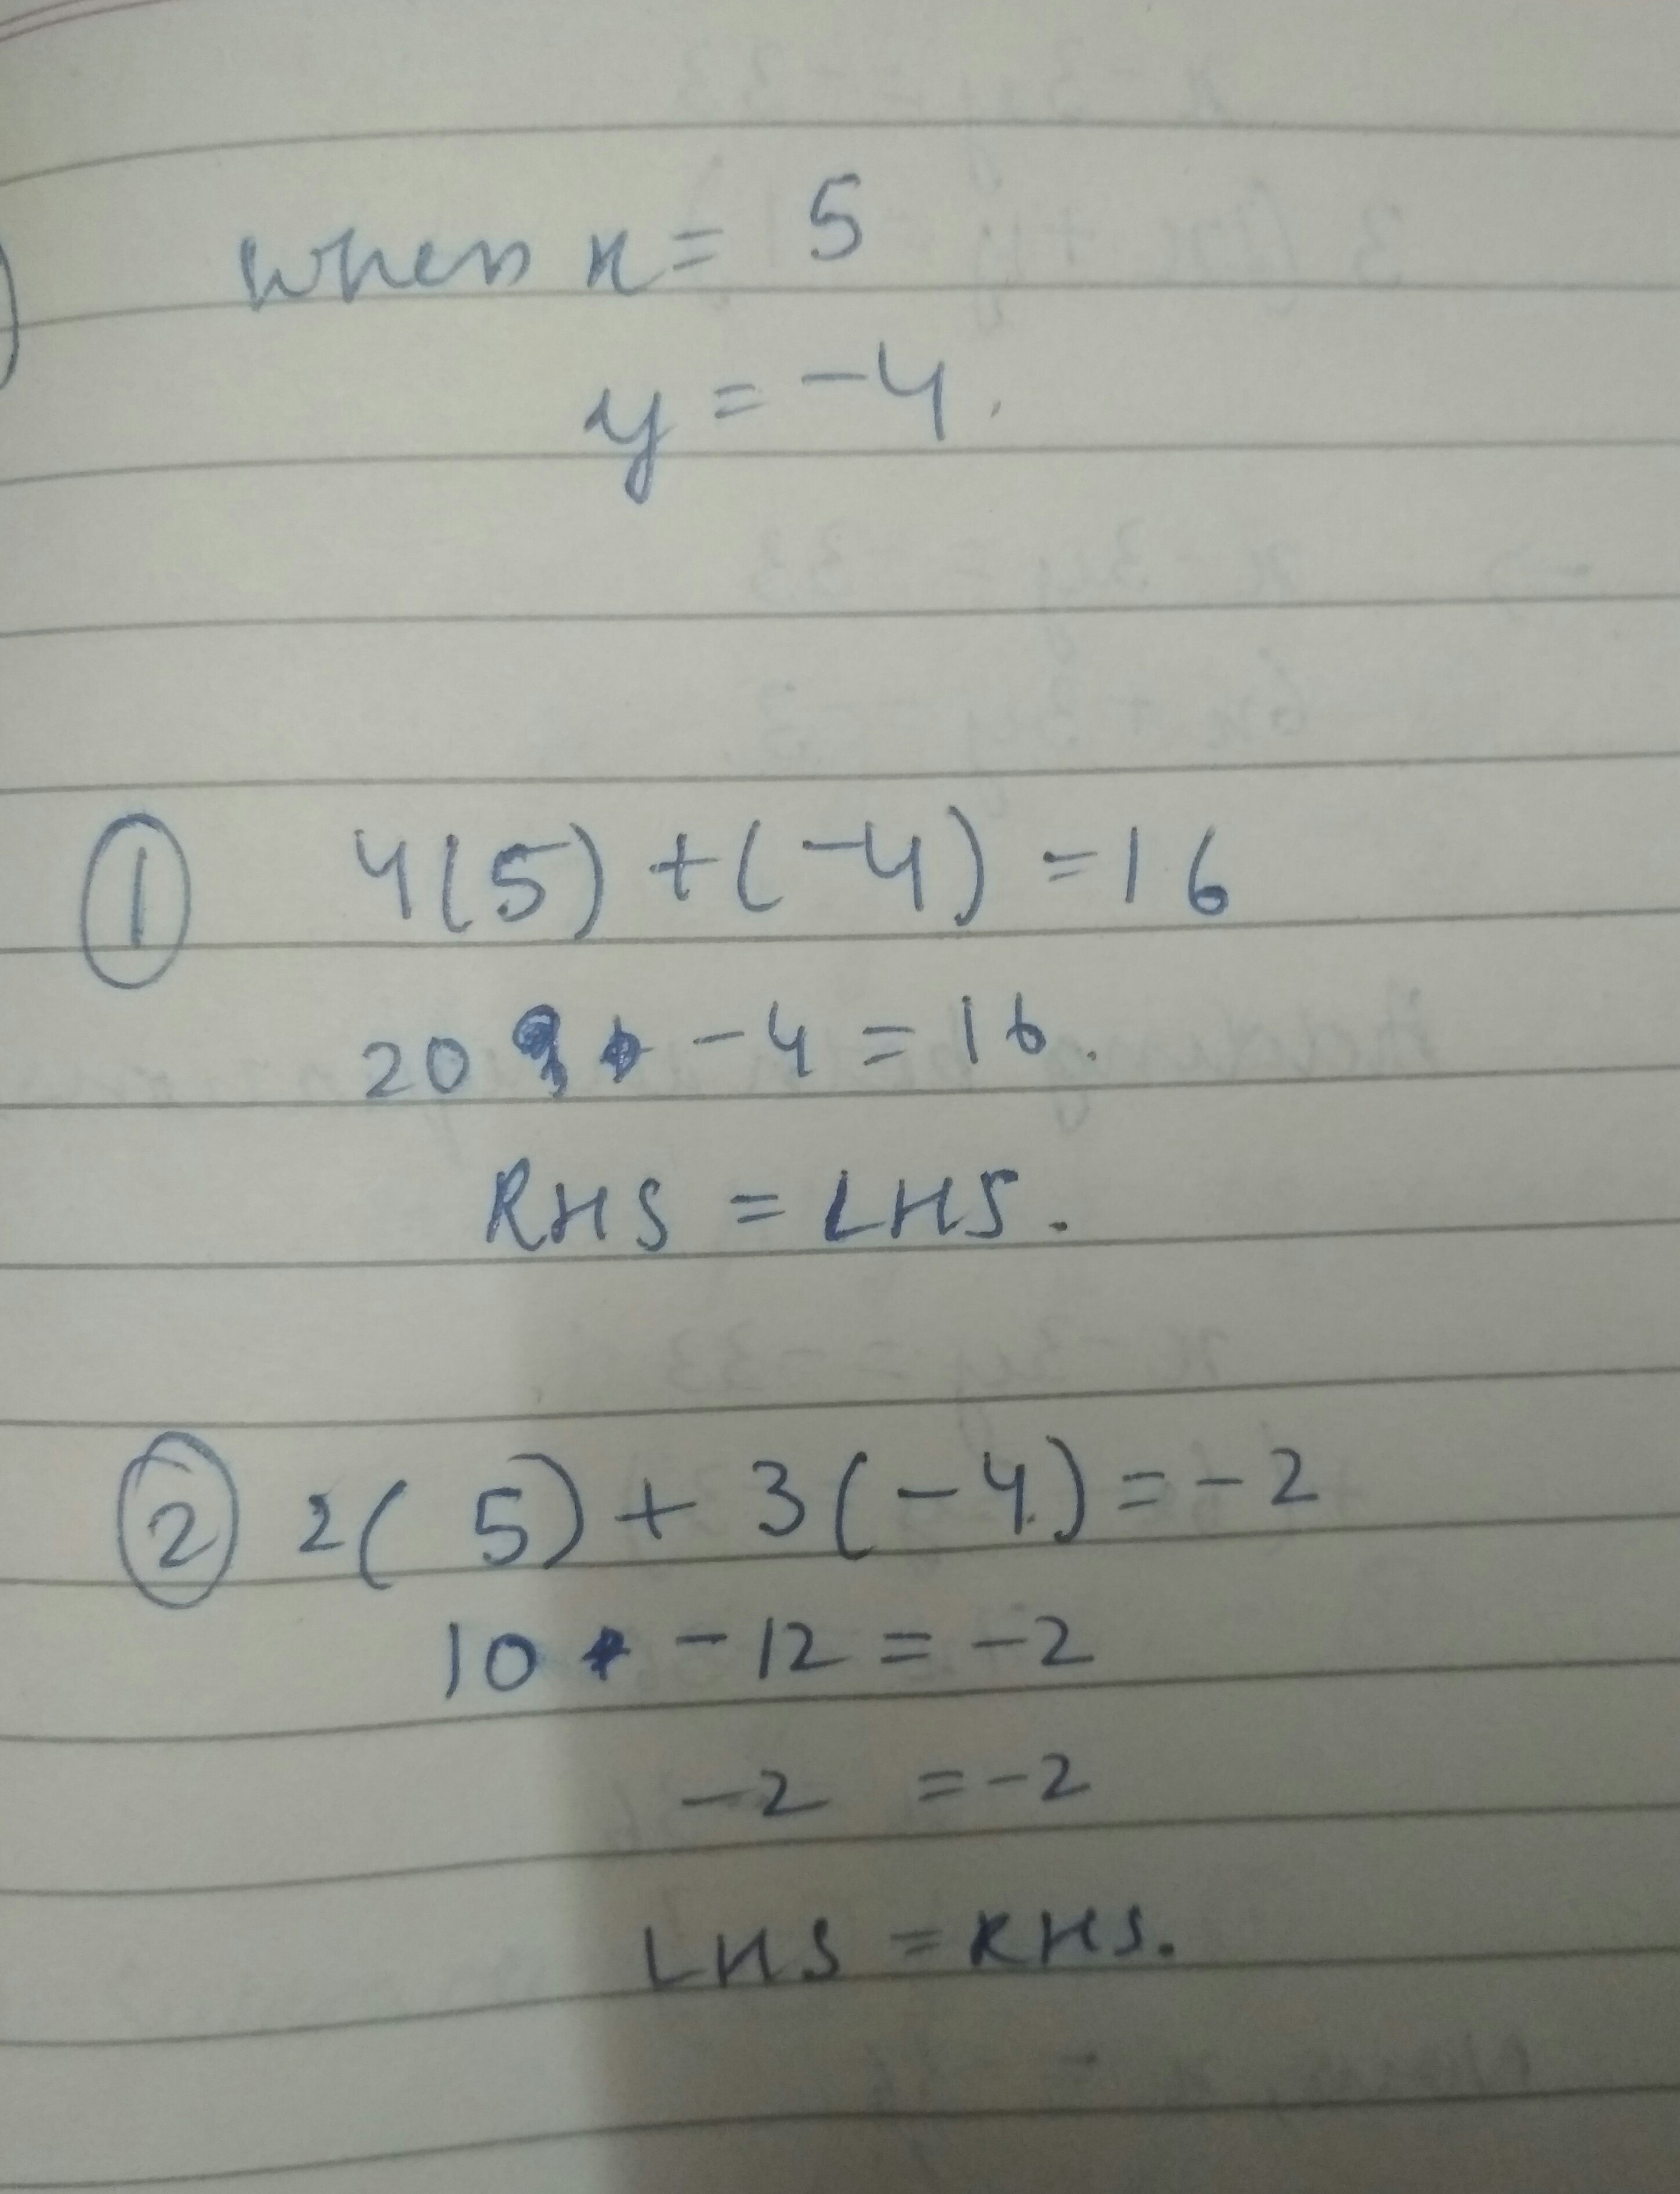 when x = 5
y = -4.
① 4(5) + (-4) = 16
20 - 4 = 16.
RHS = LHS.
② 2(5) + 3(-4) = -2
10 - 12 = -2
-2 = -2
LHS = RHS.